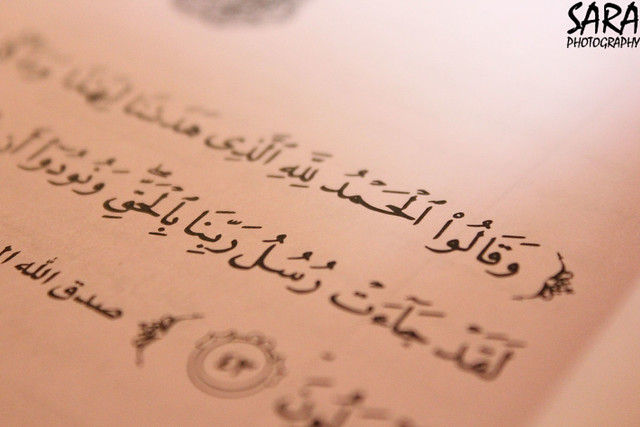 SARA
PHOTOGRAPHY
﴿ وَقَالُوا۟ ٱلْحَمْدُ لِلَّهِ ٱلَّذِى هَدَىٰنَا لِهَٰذَا وَمَا
لَقَدْ جَآءَتْ رُسُلُ رَبِّنَا بِٱلْحَقِّ ۖ وَنُودُوٓا۟ أَن
٤٣ ﴾ صدق الله